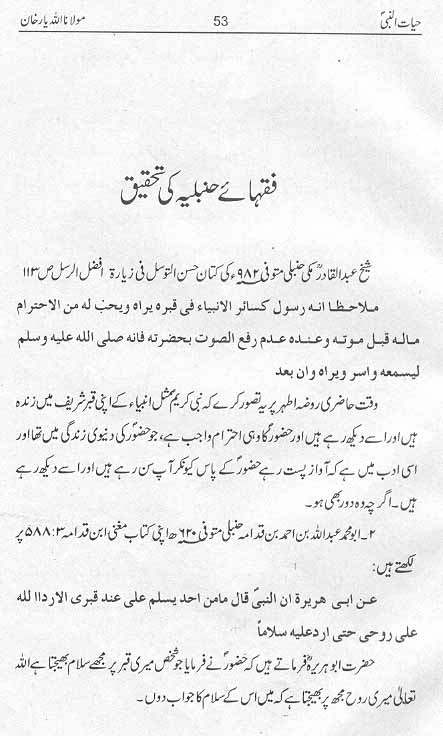 حیات النبیؐ 53 مولانا اللہ یار خان
فقہائے حنبلیہ کی تحقیق
شیخ عبدالقادرؒ مکی حنبلی متوفی ۹۸۲ء کی کتاب حسن التوسل فی زیارۃ افضل الرسل ص ۱۱۳
ملاحظا انه رسول کسائر الانبیاء فی قبره یراه ویحب له من الاحترام
ماله قبل موته وعنده عدم رفع الصوت بحضرته فانه صلی الله علیه وسلم
لیسمعه واسر ویراه وان بعد
وقت حاضری روضہ اطہر پر یہ تصور کرے کہ نبی کریمؐ مثل انبیاء کے اپنی قبر شریف میں زندہ
ہیں اور اسے دیکھ رہے ہیں اور حضورؐ کا وہی احترام واجب ہے، جو حضورؐ کی دنیوی زندگی میں تھا اور
اسی ادب میں ہے کہ آواز پست رہے حضورؐ کے پاس کیونکر آپ سن رہے ہیں اور اسے دیکھ رہے
ہیں۔ اگرچہ وہ دور بھی ہو۔
۲۔ ابو محمد عبداللہ بن احمد بن قدامہ حنبلی متوفی ۶۲۰ھ اپنی کتاب مغنی ابن قدامہ ۳:۵۸۸ پر
لکھتے ہیں:
عن ابی هریرة ان النبیؐ قال مامن احد یسلم علی عند قبری الاردا لله
علی روحی حتی اردعلیه سلاماً
حضرت ابو ہریرہؓ فرماتے ہیں کہ حضورؐ نے فرمایا جو شخص میری قبر پر مجھے سلام بھیجتا ہے اللہ
تعالیٰ میری روح مجھ پر بھیجتا ہے کہ میں اس کے سلام کا جواب دوں۔